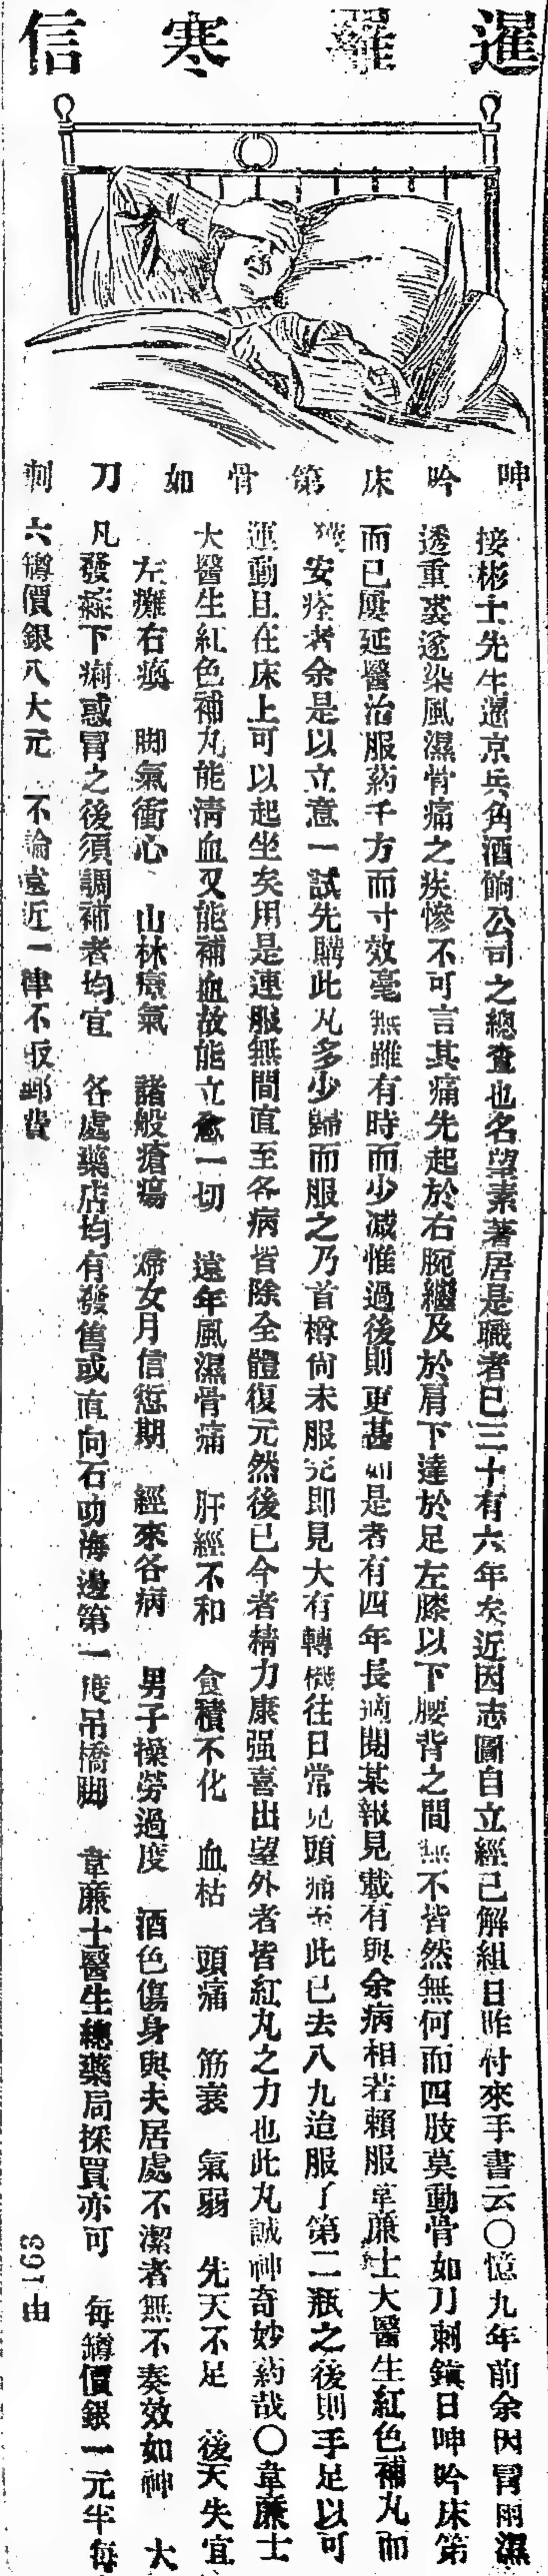 暹羅寒信
呻吟床第骨如刀刺
接彬士先生暹京兵角酒餉公司之總查也名望素著居是職者已三十有六年矣近因志圖自立經已解組日昨付來手書云〇憶九年前余因冒雨濕
透重裘遂染風濕骨痛之疾慘不可言其痛先起於右腕繼及於肩下達於足左膝以下腰背之間無不皆然無何而四肢莫動骨如刀刺鎮日呻吟床第
而已屢延醫治服葯千方而寸效毫無雖有時而少减惟過後則更甚如是者有四年長適閱某報見載有與余病相若賴服韋廉士大醫生紅色補丸而
獲安痊者余是以立意一試先購此丸多少歸而服之乃首樽尚未服完即見大有轉機往日常見頭痛至此已去八九迨服了第二瓶之後則手足以可
運動且在床上可以起坐矣用是連服無間直至各病皆除全體復元然後已今者精力康强喜出望外者皆紅丸之力也此丸誠神奇妙葯哉〇韋廉士
大醫生紅色補丸能清血又能補血故能立愈一切 遠年風濕骨痛 肝經不和 食積不化 血枯 頭痛 筋衰 氣弱 先天不足 後天失宜
左癱右瘓 脚氣衝心 山林瘴氣 諸般瘡瘍 婦女月信愆期 經來各病 男子操勞過度 酒色傷身與夫居處不潔者無不奏效如神 大
凡發痧下痢或冒之後須調補者均宜 各處藥店均有發售或直向石叻海邊第一度吊橋脚 韋廉士醫生總藥局採買亦可 每罇價銀一元半每
六罇價銀八大元 不論遠近一律不收郵費 163由